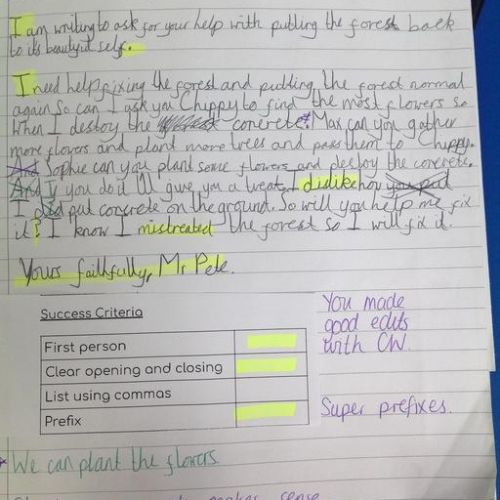 I am writing to ask for your help with putting the forest back
to its beautyful self.
I need help fixing the forest and putting the forest normal
again so can I ask you Chippy to find the most flowers so
When I destoy the concrete. Max can you gather
more flowers and plant more trees and pass them to Chippy.
And Sophie can you plant some flowers and destoy the concrete.
And if you do it I'll give you a treat. I dislike how you put
I did put concrete on the ground. So will you help me fix
it? I know I mistreated the forest so I will fix it.
Yours faithfully, Mr Pete.
Success Criteria
First person
Clear opening and closing
List using commas
Prefix
You made
good edits
with CW.
Super prefixes.
We can plant the flowers
makes sense